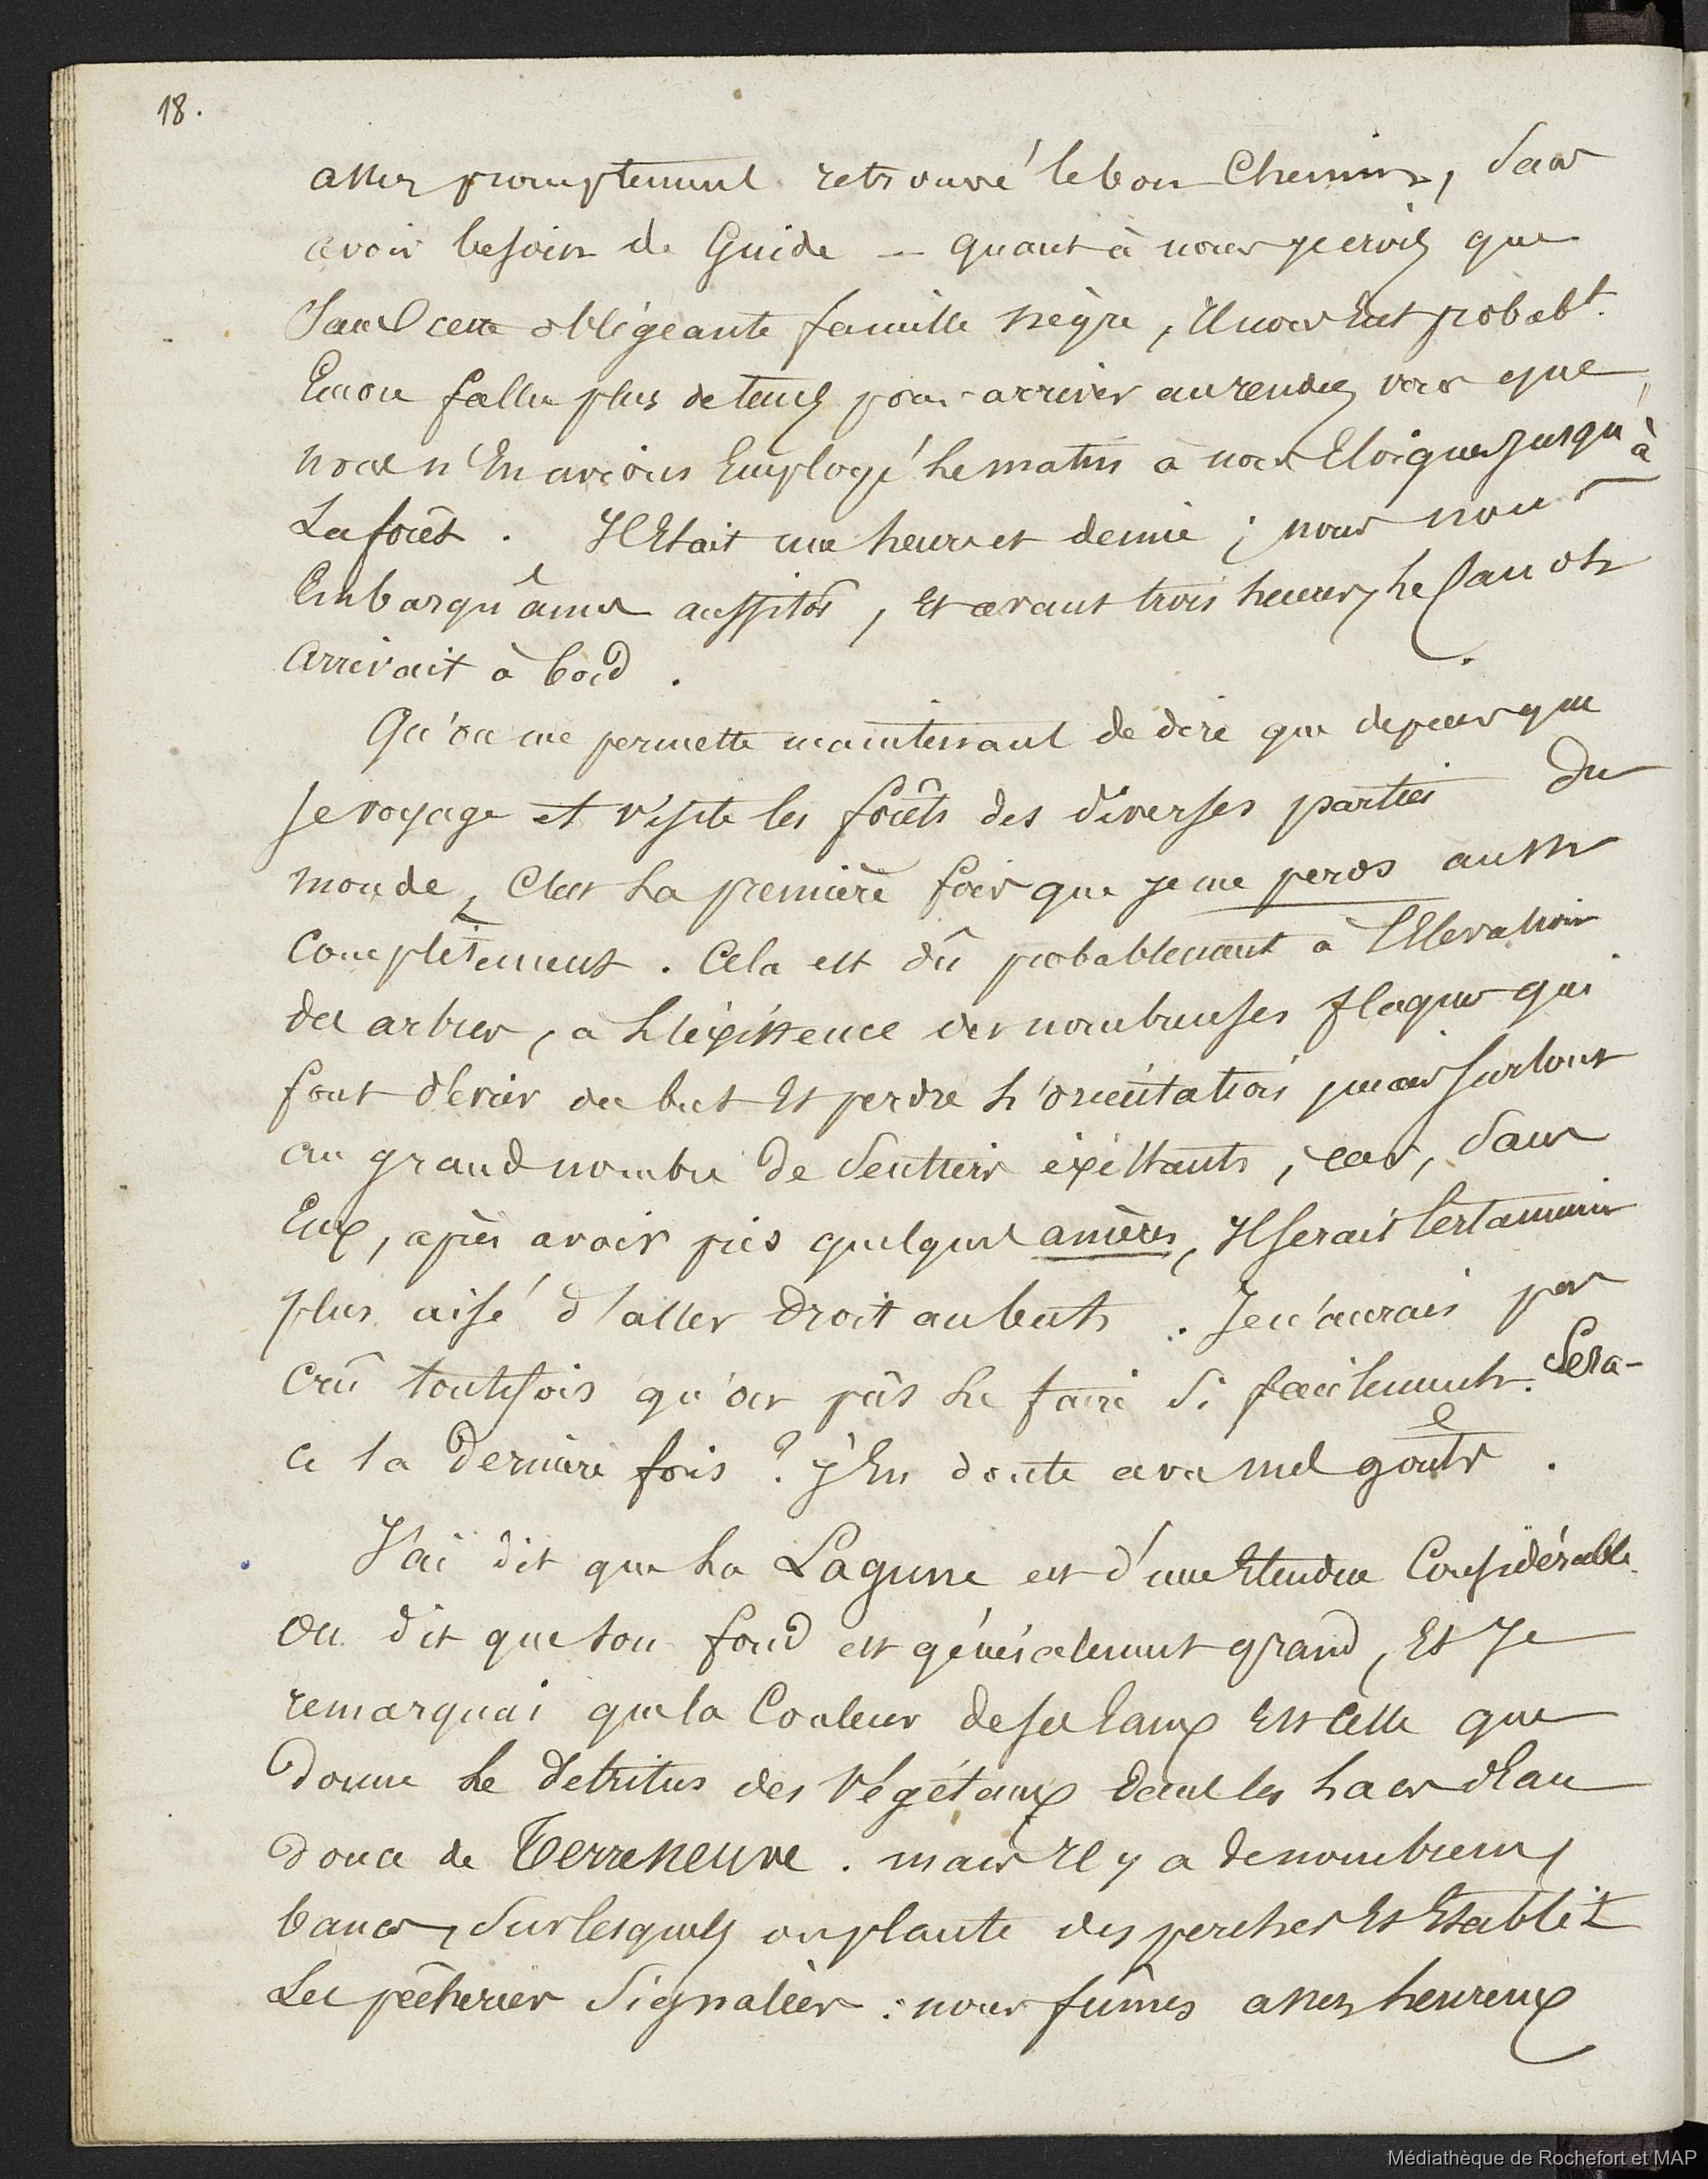 18.
assez promptement retrouvé le bon Chemin, sans
avoir besoin de Guide — quant à nous je crois que
Sans cette obligeante famille nègre, Il nous Eut probabt.
Encore fallu plus de tems pour arriver au rendez vous que
nous n'En avions Employé le matin à nous Eloigner jusqu'à
La forêt. Il Etait une heure et demie ; nous nous
Embarquâmes aussitôt, Et avant trois heures, le canot
arrivait à bord.
Qu'on me permette maintenant de dire que depuis que
je voyage et visite les forêts des diverses parties du
monde, C'est la première fois que je me perds aussi
complètement. Cela est dû probablement à l'Elevation
des arbres, a l'existence des nombreuses flaques qui
font dévier du but Et perdre l'orientation, mais surtout
au grand nombre de Sentiers existants, car, sans
Eux, après avoir pris quelques amères, Il serait certainement
plus aisé d'aller droit au but. Je n'aurais pas
crû toutefois qu'on pût le faire si facilement. Sera-
ce la dernière fois ? j'En doute avec mes goûts.
J'ai dit que la Lagune est d'une Etendue Considérable.
On dit que son fond est généralement grand, Et Je
remarquai que la Couleur de ses Eaux Est Celle que
donne le détritus des Végétaux dans les lacs d'Eau
douce de Terreneuve. mais Il y a de nombreux
bancs, sur lesquels on plante des perches Et Etablit
Les pêcheries Signalées : nous fûmes assez heureux
Médiathèque de Rochefort et MAP